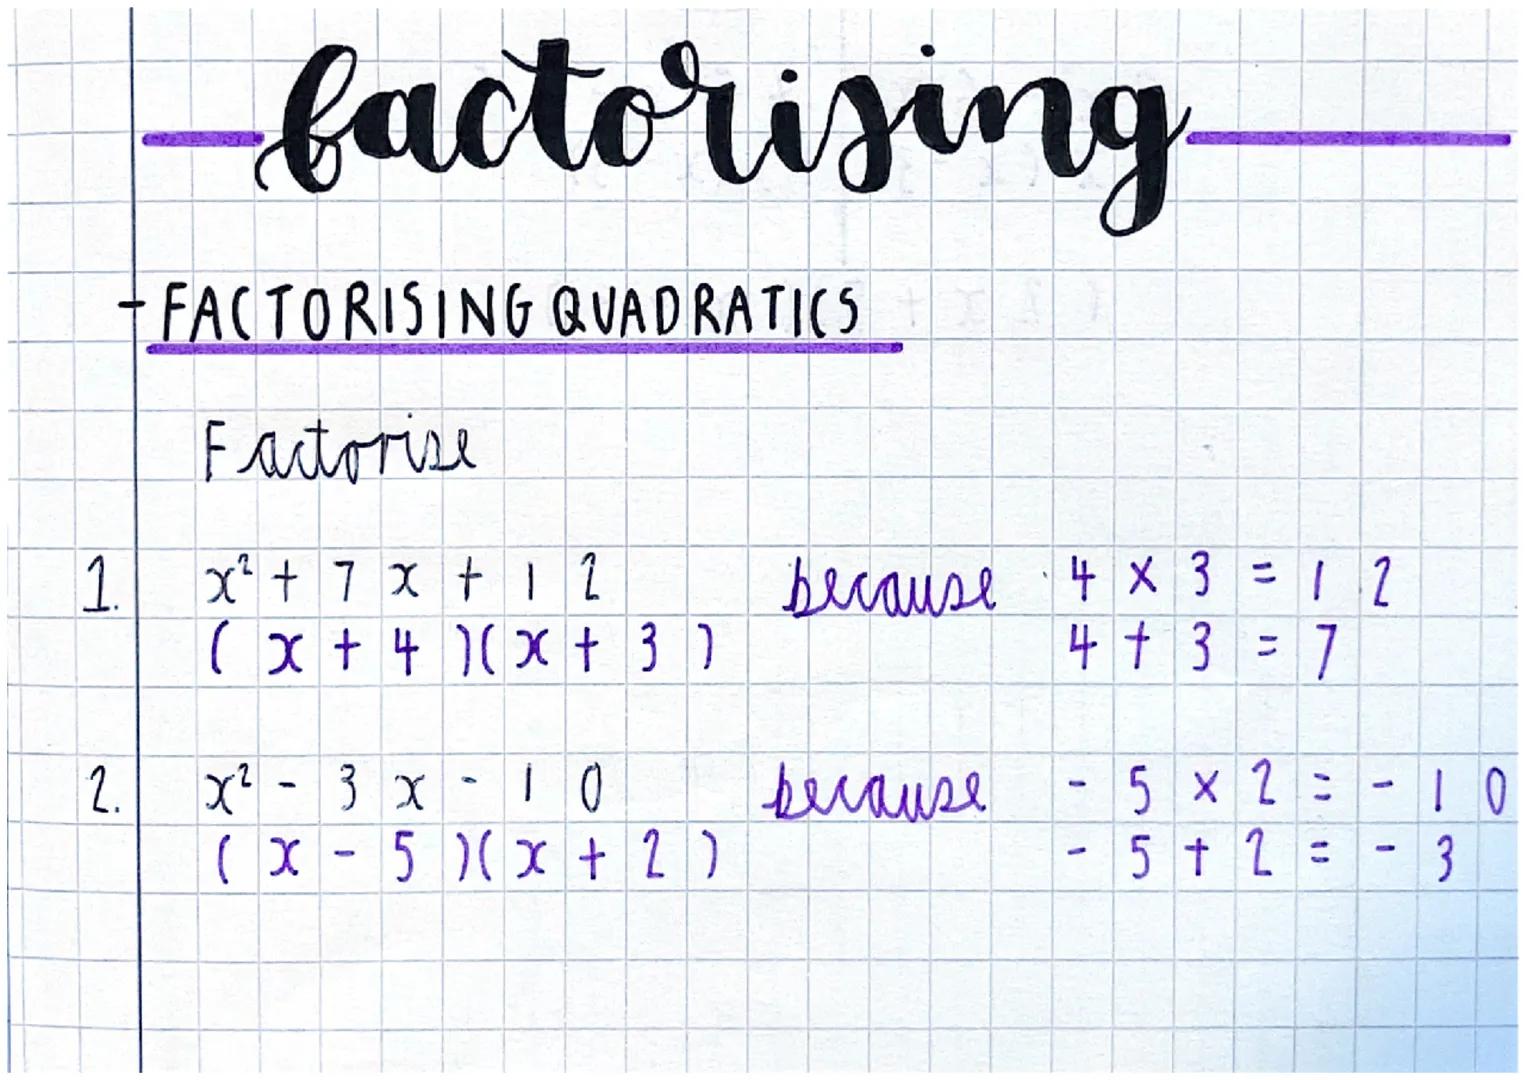 factorising
- FACTORISING QUADRATICS
Factorise
1. x² + 7x + 12 because 4 × 3 = 12
(x + 4)(x + 3) 4 + 3 = 7
2. x² - 3x - 10 because - 5 × 2 = - 10
(x - 5)(x + 2) - 5 + 2 = - 3